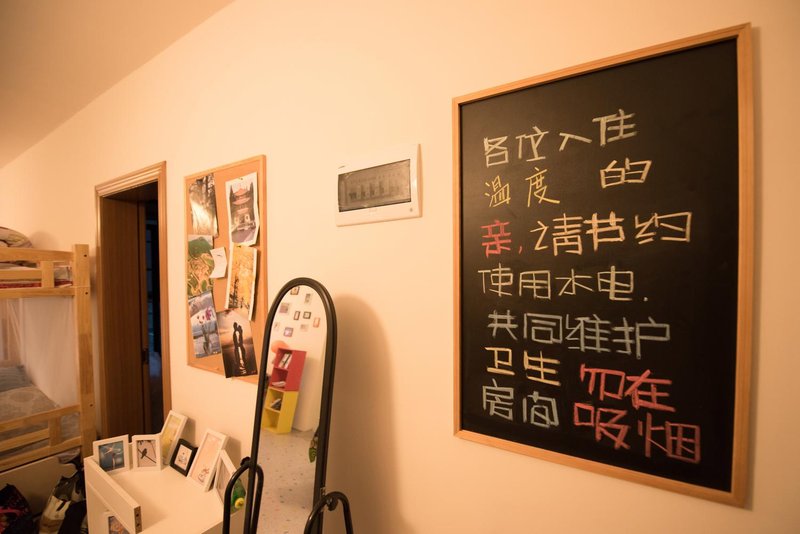 各位入住
温度的
亲,请节约
使用水电.
共同维护
卫生
房间 勿在
吸烟